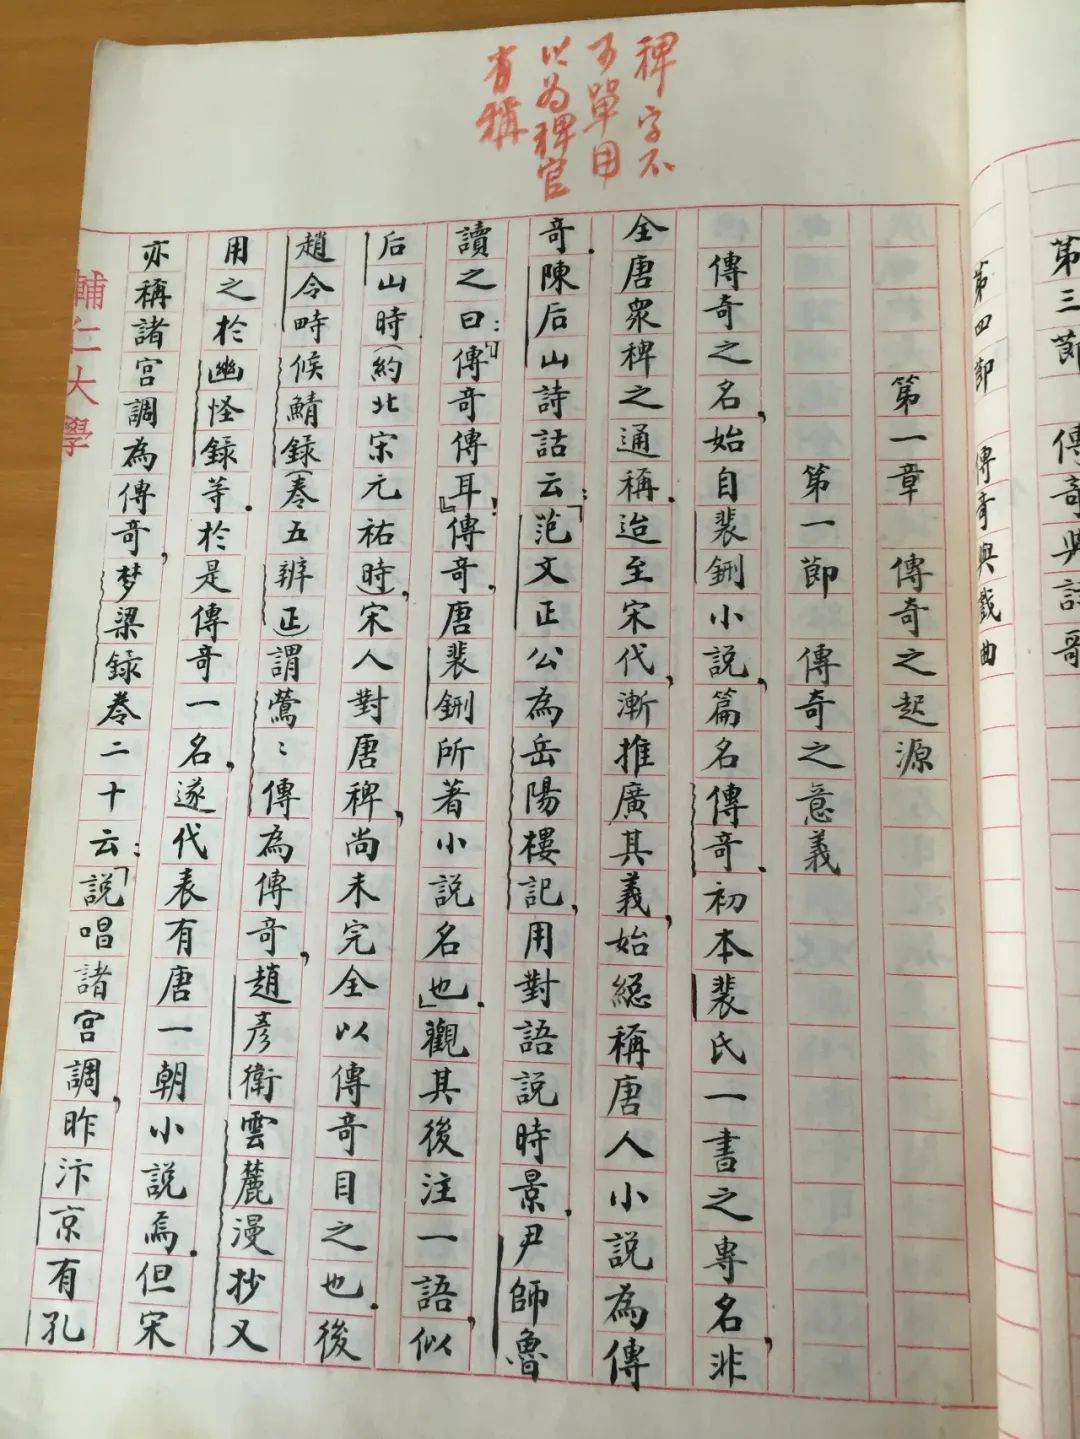 第三節　傳奇與詩歌
第四節　傳奇與戲曲
稗字不
可單用
以為稗官
者稱
第一章　傳奇之起源
第一節　傳奇之意義
傳奇之名，始自裴鉶小說，篇名傳奇．初本裴氏一書之專名，非
全唐眾稗之通稱．迨至宋代，漸推廣其義，始總稱唐人小說為傳
奇．陳后山詩話云：「范文正公為岳陽樓記，用對語說時景．尹師魯
讀之曰：『傳奇傳耳！』傳奇，唐裴鉶所著小說名也」．觀其後注一語，似
后山時（約北宋元祐時），宋人對唐稗，尚未完全以傳奇目之也．後
趙令畤侯鯖錄（卷五辨正）謂鶯〻傳為傳奇，趙彥衛雲麓漫抄又
用之於幽怪錄等．於是傳奇一名，遂代表有唐一朝小說焉．但宋
亦稱諸宮調為傳奇，梦梁錄卷二十云：「說唱諸宮調，昨汴京有孔
輔仁大學